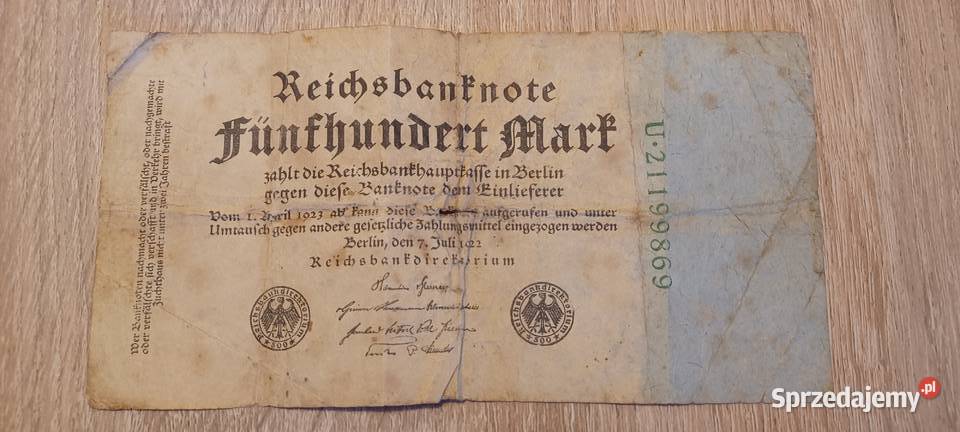 Reichsbanknote
Fünfhundert Mark
zahlt die Reichsbankhauptkasse in Berlin
gegen diese Banknote dem Einlieferer
Vom 1. April 1923 ab kann diese aufgerufen und unter
Umtausch gegen andere gesetzliche Zahlungsmittel eingezogen werden
Berlin, den 7. Juli 1922
Reichsbankdirektorium
Reichsbankdirektorium
500
Reichsbankdirektorium
500
Wer Banknoten nachmacht oder verfälscht, oder nachgemachte
oder verfälschte sich verschafft und in Verkehr bringt, wird mit
Zuchthaus nicht unter zwei Jahren bestraft
U·21199869
Sprzedajemy.pl